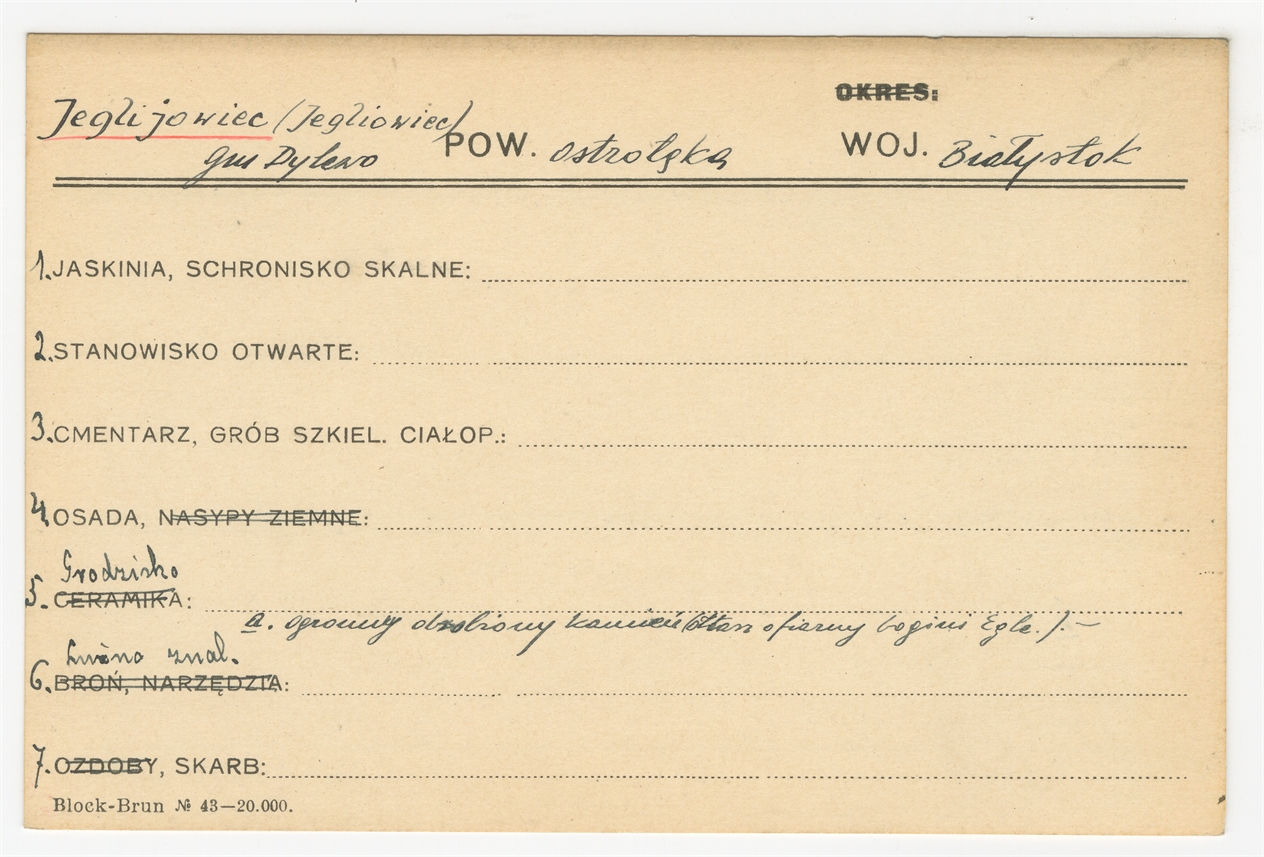 OKRES:
Jeglijowiec (Jegliowiec)
gm Dylewo POW. Ostrołęka WOJ. Białystok
1. JASKINIA, SCHRONISKO SKALNE:
2. STANOWISKO OTWARTE:
3. CMENTARZ, GRÓB SZKIEL. CIAŁOP.:
4. OSADA, NASYPY ZIEMNE:
Grodzisko
5. CERAMIKA:
a. ogromny drobiony kamień (Ołtarz ofiarny bogini Egle.). —
Luźno znal.
6. BROŃ, NARZĘDZIA:
7. OZDOBY, SKARB:
Block-Brun № 43—20.000.